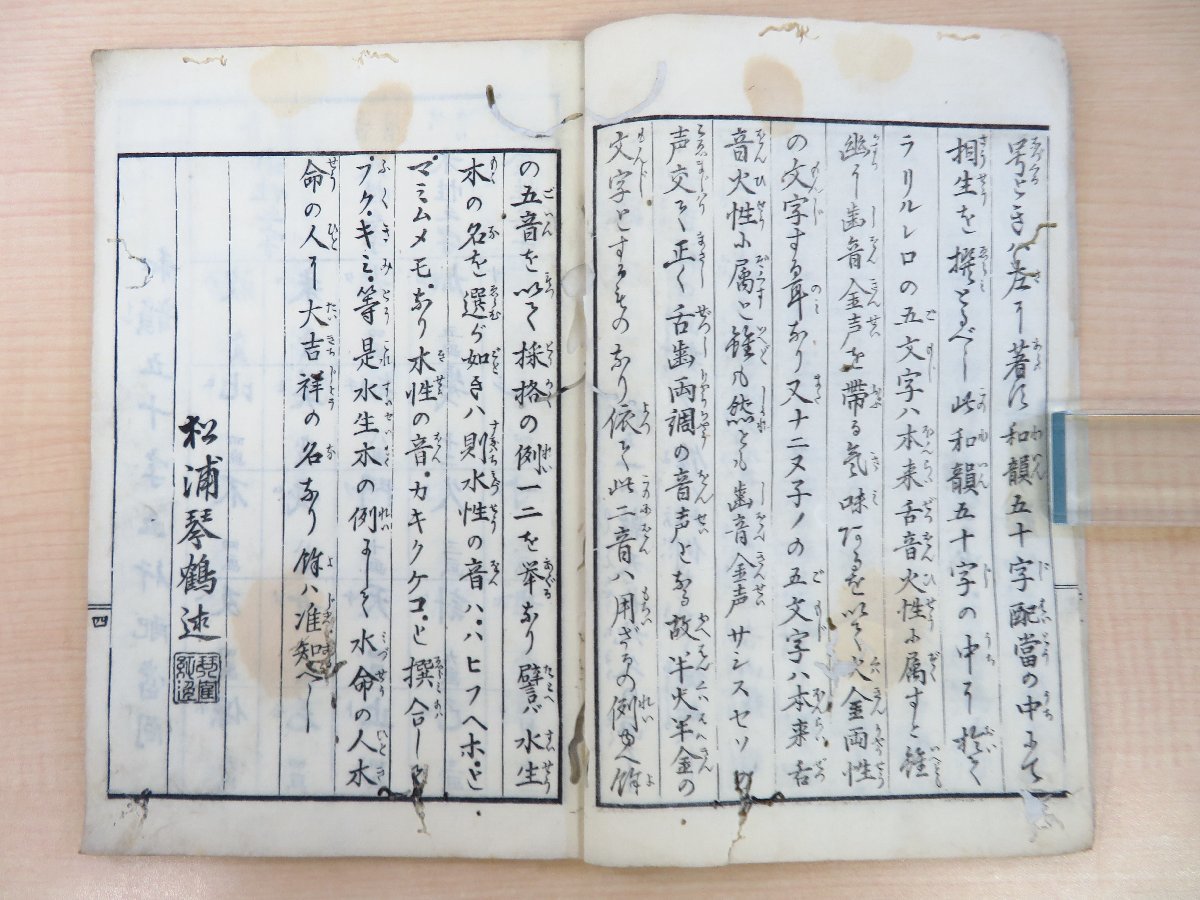 号とき八左に著す和韻五十字配當の中にて
相生を撰とるべし此和韻五十字の中に於て
ラリルレロの五文字ハ本来舌音火性に属すと雖
幽に歯音金声を帯る気味あるを以て火金両性
の文字する耳なり又ナニヌ子ノの五文字ハ本来舌
音火性に属と雖も然とも歯音金声サシスセソ
声交て正く舌歯両調の音声となる故半火半金の
文字とするものなり依て此二音八用ざるの例ゆへ餘
の五音を以て採格の例一二を挙なり譬バ水生
木の名を選が如きハ則水性の音ハ。ハヒフヘホ。と
マミムメモ。なり木性の音。カキクケコ。と撰合し
フク。キミ。等是水生木の例にして水命の人木
命の人に大吉祥の名なり餘ハ准知べし
松浦琴鶴述
四